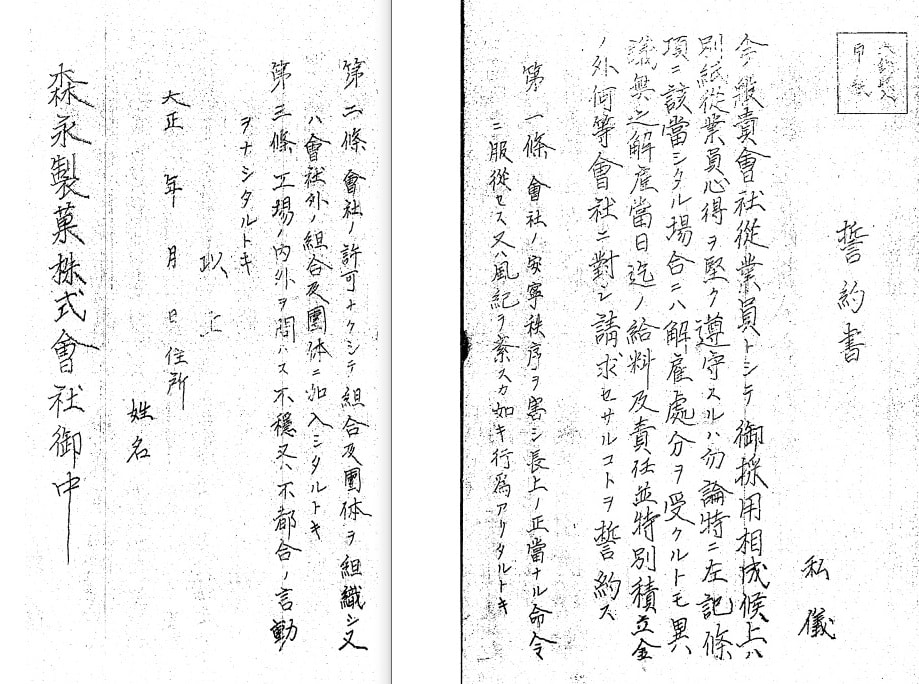 誓約書
私儀
今般貴會社従業員トシテ御採用相成候上ハ
別紙従業員心得ヲ堅ク遵守スルハ勿論特ニ左記條
項ニ該當シタル場合ニハ解雇處分ヲ受クルトモ異
議無之解雇當日迄ノ給料及責任並特別積立金
ノ外何等會社ニ對シ請求セサルコトヲ誓約ス
第一條 會社ノ安寧秩序ヲ害シ長上ノ正當ナル命令
ニ服從セス又ハ風紀ヲ紊スカ如キ行爲アリタルトキ
第二條 會社ノ許可ナクシテ組合及團体ヲ組織シ又
ハ會社外ノ組合及團体ニ加入シタルトキ
第三條 工場ノ内外ヲ問ハス不穏又ハ不都合ノ言動
ヲナシタルトキ
以上
大正 年 月 日 住所
姓名
森永製菓株式會社御中